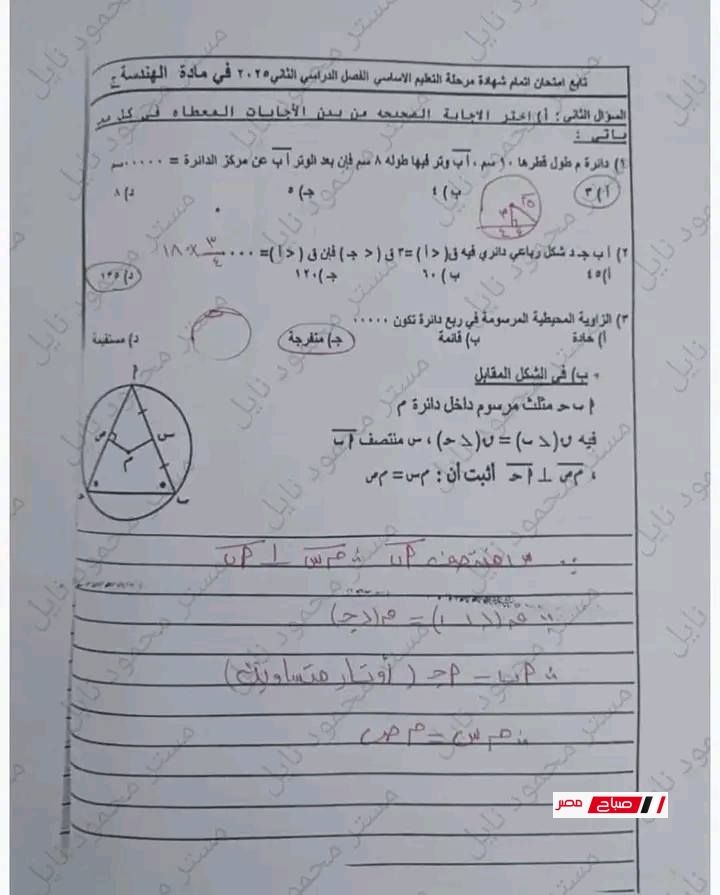 تابع امتحان اتمام شهادة مرحلة التعليم الاساسي الفصل الدراسي الثاني ٢٠٢٥ في مادة الهندسة ج
السؤال الثاني : أ) اختر الاجابة الصحيحه من بين الأجابات المعطاه في كل مما
يأتي :
١) دائرة م طول قطرها ١٠ سم ، أب وتر فيها طوله ٨ سم فإن بعد الوتر أب عن مركز الدائرة = ٠٠٠٠٠ سم
أ) ٣ ب) ٤ جـ) ٥ د) ٨
٣ ٥ ٤ ٤
٢) أ ب جـ د شكل رباعي دائري فيه ق( < أ ) = ٣ ق ( < جـ ) فإن ق ( < أ ) = ٠٠٠٠ ٣/٤ × ١٨٠
أ) ٤٥ ب) ٦٠ جـ) ١٢٠ د) ١٣٥
٣) الزاوية المحيطية المرسومة في ربع دائرة تكون ٠٠٠٠٠
أ) حادة ب) قائمة جـ) منفرجة د) مستقيمة
ب) في الشكل المقابل
م س ص م ب ح
م ب ح مثلث مرسوم داخل دائرة م
فيه ن(د ب) = ن(د ح) ، س منتصف م ب
، م ص ⊥ م ح أثبت أن : م س = م ص
∵ س منتصف م ب ∴ م س ⊥ م ب
∵ ق(د ب) = ق(د جـ)
∴ م ب = م جـ ( أوتار متساوية )
∴ م س = م ص
صباح مصر
مستر محمود نايل